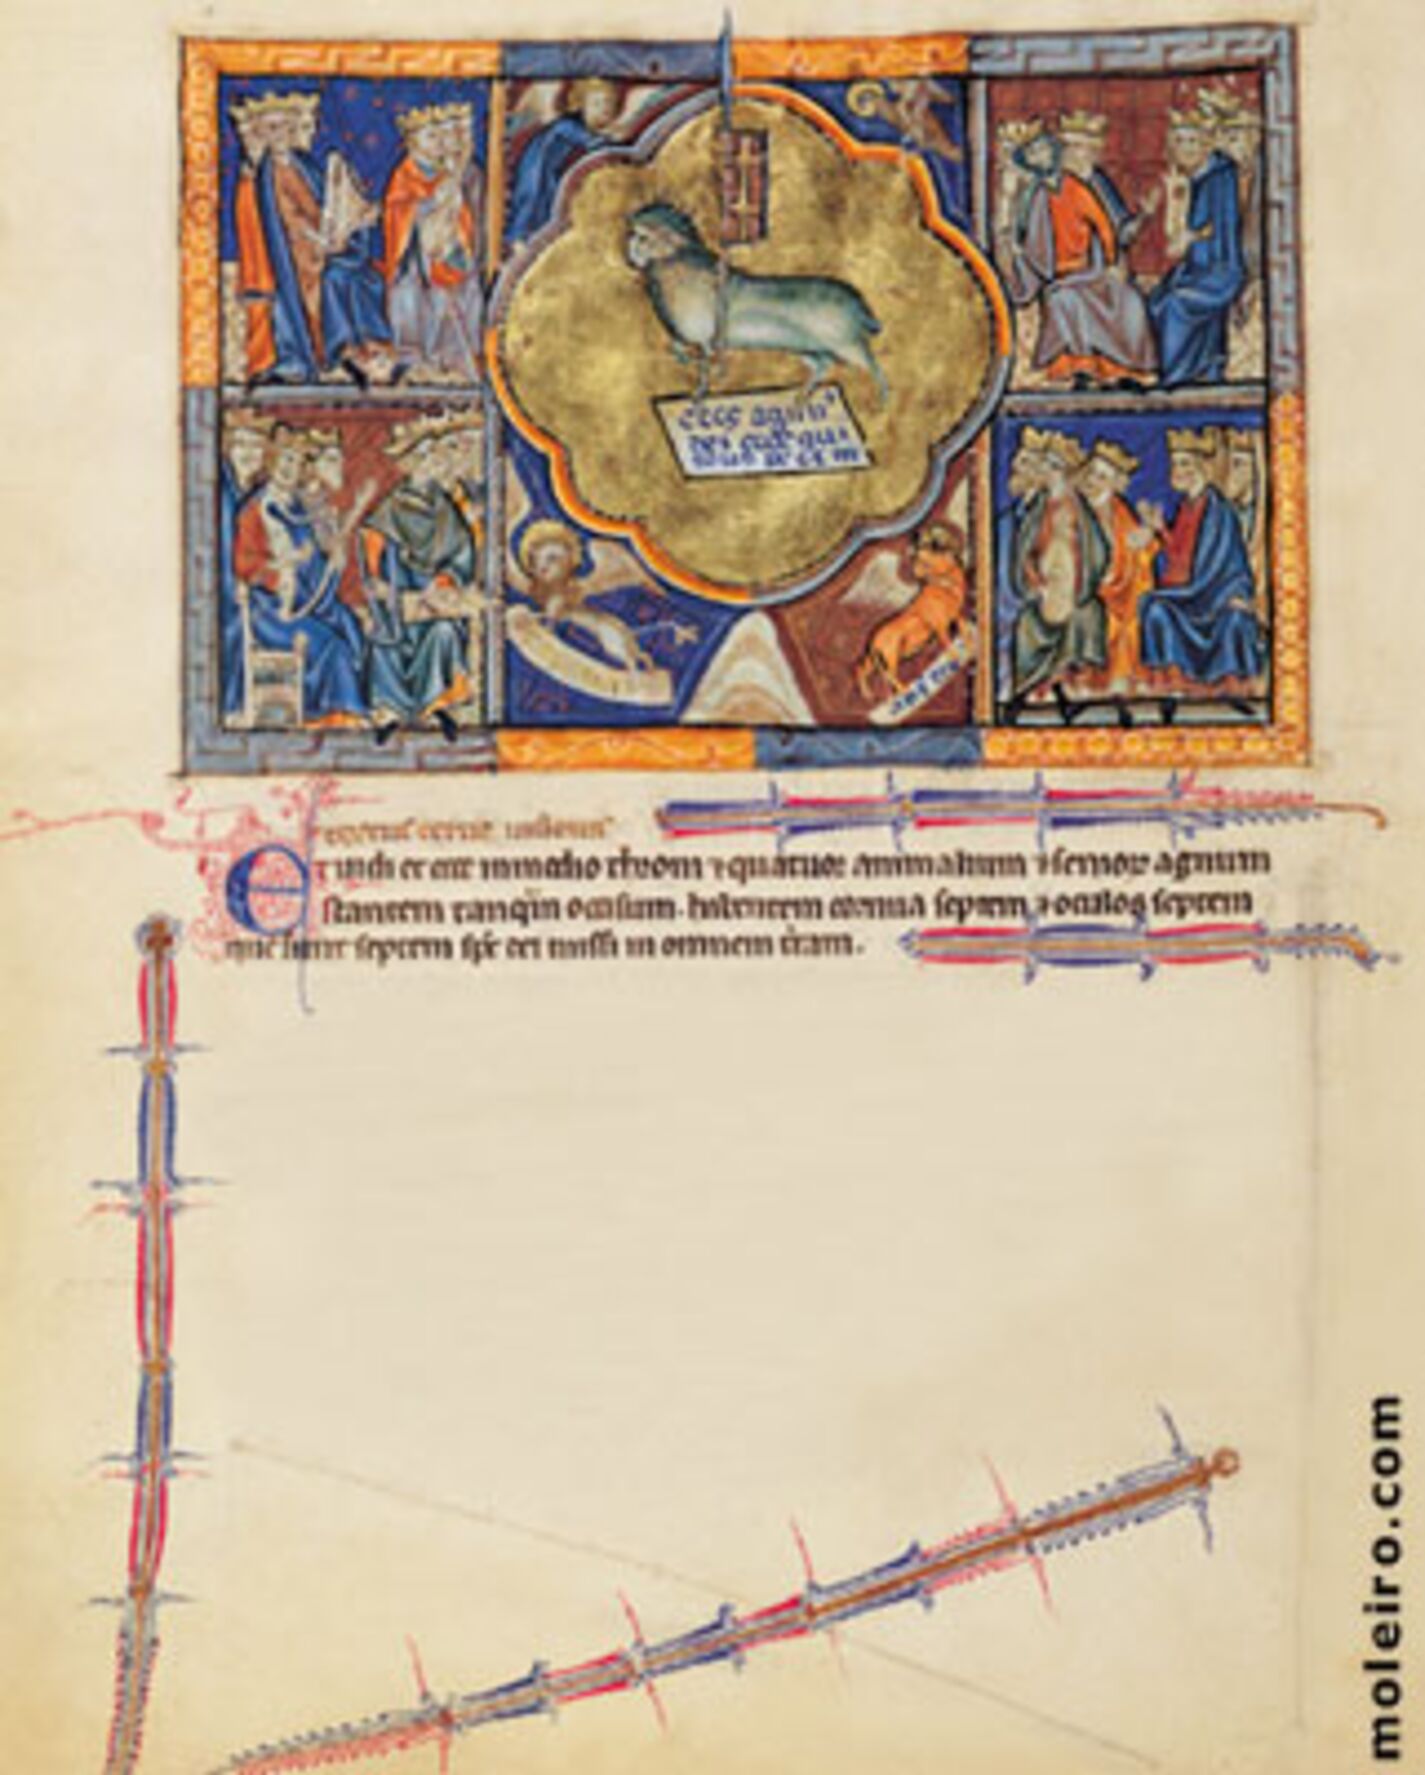 ecce agnu
dei ecce qui
Et uidi et ecce in medio throni ⁊ quatuor animalium ⁊ senioꝝ agnum
stantem tanqͣm occisum. habentem cornua septem ⁊ oculos septem
qui sunt septem sp̄c dei missi in omnem t̄ram.
moleiro.com